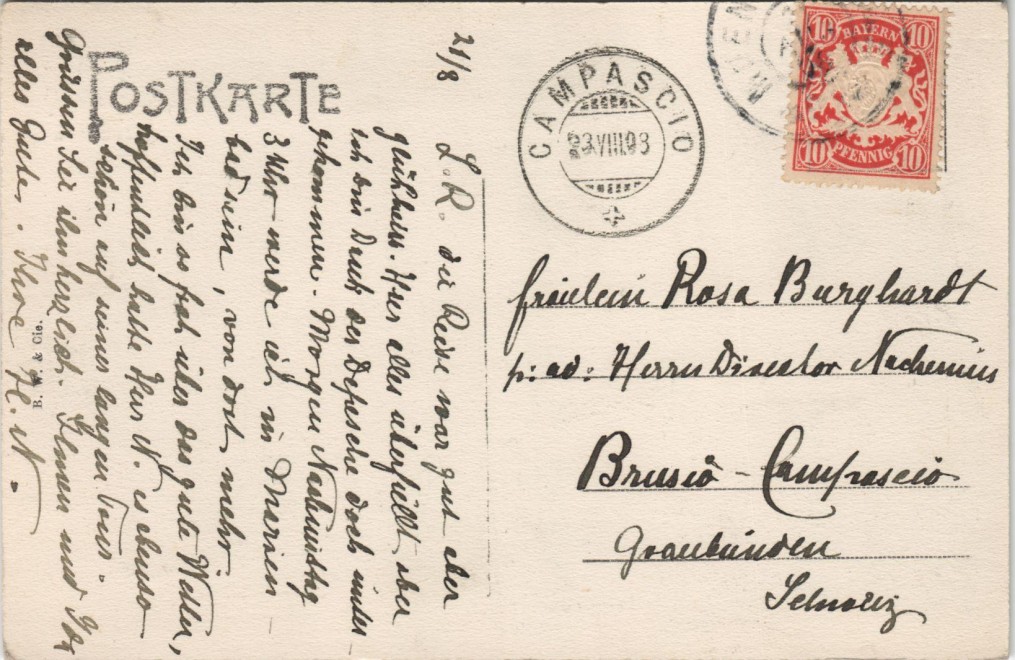 POSTKARTE
21/8
L. R. die Reise war gut aber
glühheiss. Hier alles überfüllt aber
ich bin Dank der Depesche doch unter-
gekommen. Morgen Nachmittag
3 Uhr werde ich in Marien-
bad sein, von dort mehr.
Ich bin so froh über das gute Wetter,
hoffentlich hatte Herr N. es ebenso
schön auf seiner langen Tour.
Grüssen Sie ihn herzlich. Ihnen und
alles Gute. Ihre H. N.
B. & Cie.
CAMPASCIO
23.VIII.03
BAYERN
10 10
10 PFENNIG 10
Fräulein Rosa Burghardt
p: ad: Herrn Director
Brusio - Campascio
Graubünden
Schweiz